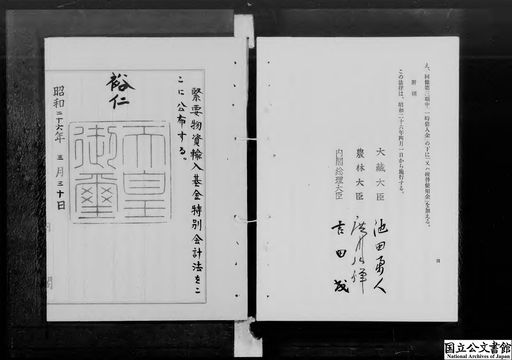 え、同条第三項中「一時借入金」の下に「又は繰替使用金」を加える。
附則
この法律は、昭和二十六年四月一日から施行する。
大蔵大臣 池田勇人
農林大臣 廣川弘禅
内閣総理大臣 吉田茂
緊要物資輸入基金特別会計法をこ
こに公布する。
裕仁
天皇
御璽
昭和二十六年三月三十日
国立公文書館
National Archives of Japan